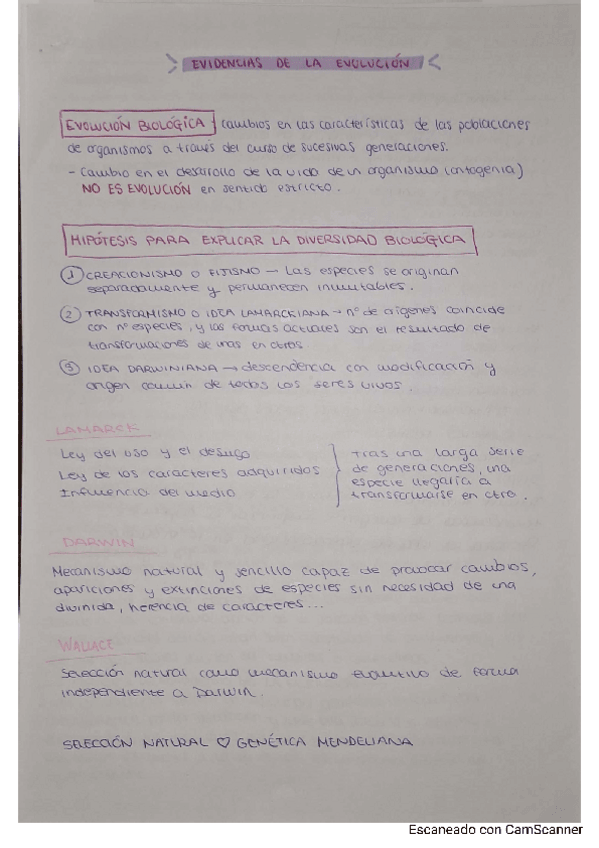 EVIDENCIAS DE LA EVOLUCIÓN
EVOLUCIÓN BIOLÓGICA cambios en las características de las poblaciones
de organismos a través del curso de sucesivas generaciones.
- Cambio en el desarrollo de la vida de un organismo (ontogenia)
NO ES EVOLUCIÓN en sentido estricto.
HIPÓTESIS PARA EXPLICAR LA DIVERSIDAD BIOLÓGICA
1 CREACIONISMO O FIJISMO — Las especies se originan
separadamente y permanecen inmutables.
2 TRANSFORMISMO O IDEA LAMARCKIANA → nº de orígenes coincide
con nº especies, y las formas actuales son el resultado de
transformaciones de unas en otras.
3 IDEA DARWINIANA → descendencia con modificación y
origen común de todos los seres vivos.
LAMARCK
Ley del uso y el desuso
Ley de los caracteres adquiridos
Influencia del medio
Tras una larga serie
de generaciones, una
especie llegaría a
transformarse en otra.
DARWIN
Mecanismo natural y sencillo capaz de provocar cambios,
apariciones y extinciones de especies sin necesidad de una
divinida, herencia de caracteres...
WALLACE
Selección natural como mecanismo evolutivo de forma
independiente a Darwin.
SELECCIÓN NATURAL ♡ GENÉTICA MENDELIANA
Escaneado con CamScanner